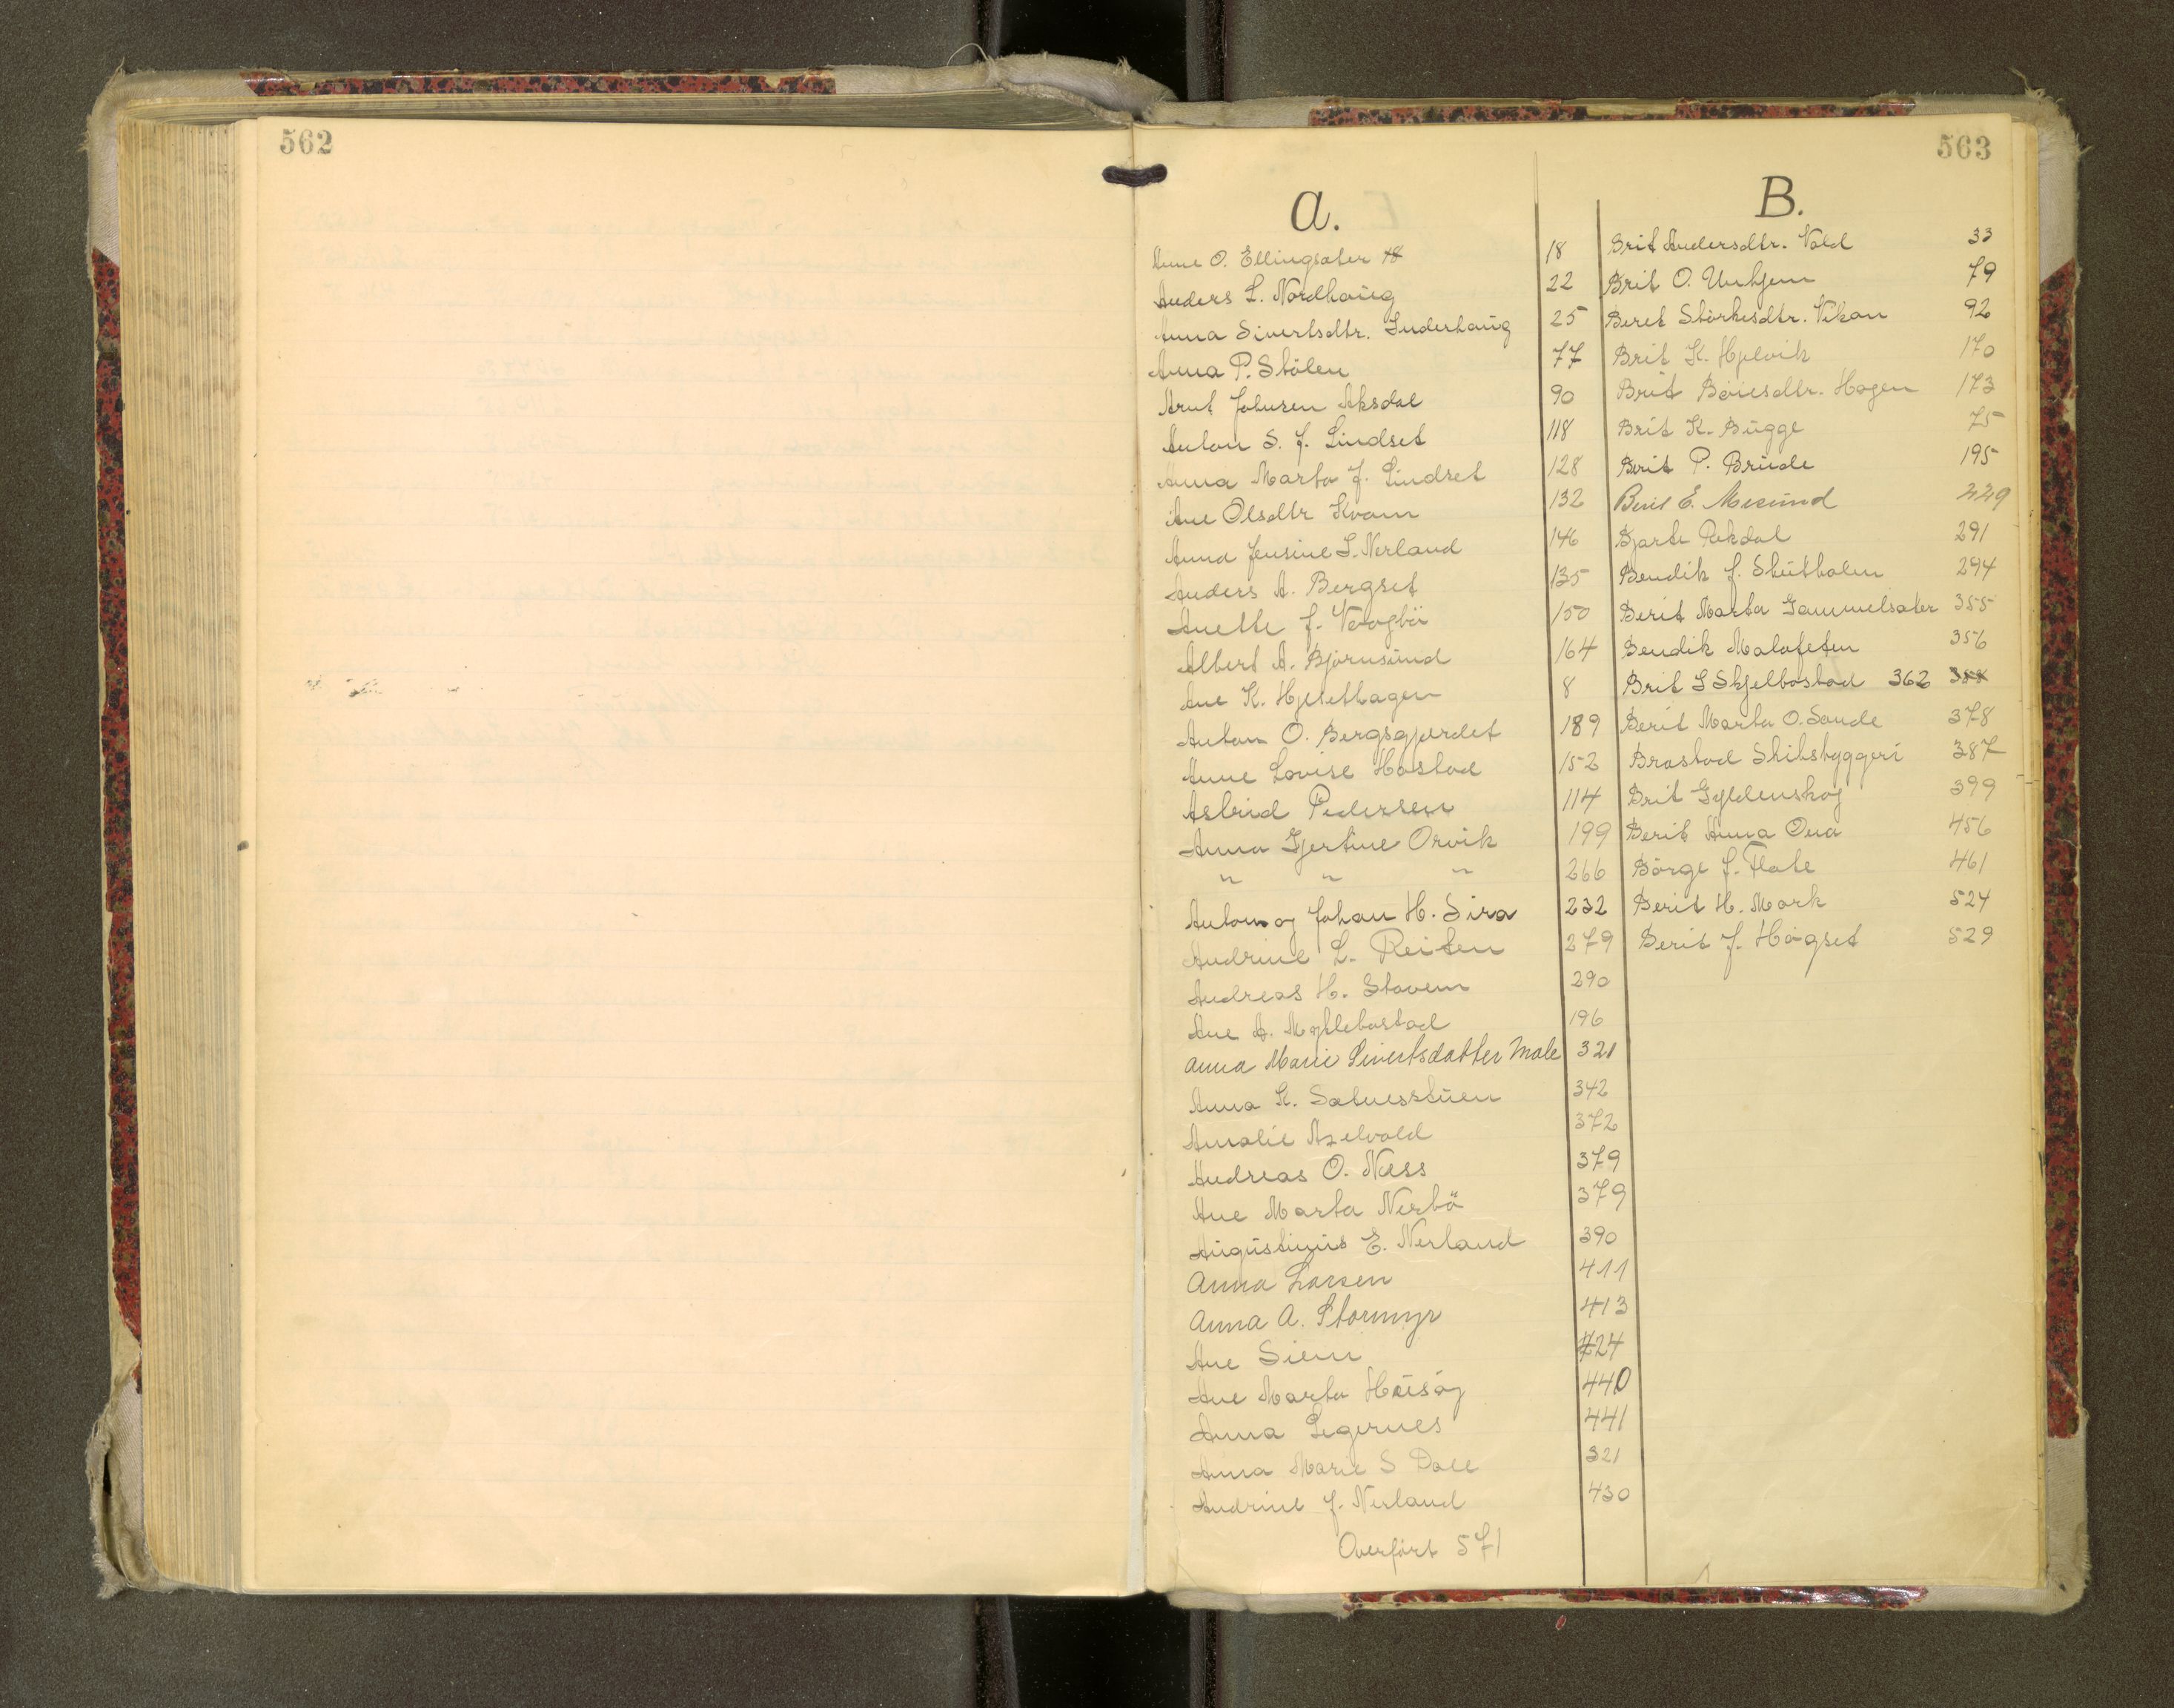 562
563
A.
Anne O. Ellingsæter 18
Anders L. Nordhaug 22
Anna Sivertsdtr. Inderhaug 25
Anna P. Stölen 77
Arnt Johnsen Aksdal 90
Anton S. J. Lindset 118
Anna Marta J. Lindset 128
Ane Olsdtr Kvam 132
Anna Jensine L. Nerland 146
Anders A. Bergset 135
Anette J. Vaagbö 150
Albert A. Björnsund 164
Ane K. Hjelethagen 8
Anton O. Bergsgjerdet 189
Anne Lovise Hostad 152
Astrid Pedersen 114
Anna Gjertine Orvik 199
" " " 266
Anton og Johan H. Sira 232
Andrine L. Reiten 279
Andreas H. Stavem 290
Ane A. Myklebostad 196
Anna Marie Sivertsdatter Male 321
Anna K. Sætnesstuen 342
Amalie Axelvold 372
Andreas O. Næss 379
Ane Marta Nerbö 379
Augustinus E. Nerland 390
Anna Larsen 411
Anna A. Stormyr 413
Ane Siem 424
Ane Marta Husöy 440
Anna Legernes 441
Anna Marie S Dale 321
Andrine J. Nerland 430
Overført 571
B.
Brit Andersdtr. Vold 33
Brit O. Unhjem 79
Beret Størkesdtr. Vikan 92
Brit K. Hjelvik 170
Brit Böiesdtr. Hagen 173
Brit K. Bugge 75
Berit P. Brude 195
Berit E. Misund 229
Bjarte Rekdal 291
Bendik J. Skutholm 294
Berit Marta Gammelsæter 355
Bendik Malofeten 356
Brit L Skjelbostad 362
Berit Marta O. Sande 378
Brastad Skibsbyggeri 387
Brit Gyldenskog 399
Berit Anna Ona 456
Börge J. Flate 461
Berit H. Mork 524
Berit J. Högset 529